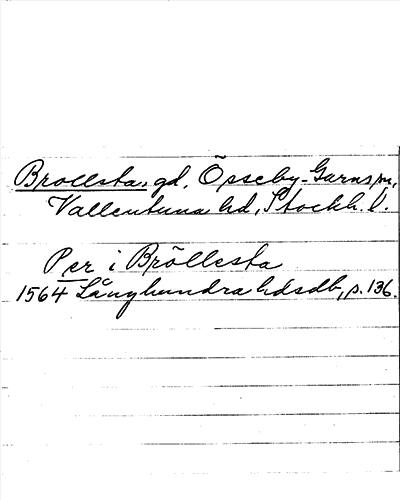 Brollsta, gd, Össeby-Garns sn,
Vallentuna hd, Stockh. l.
Per i Bröllesta
1564 Långhundra hdsdb, s. 136.